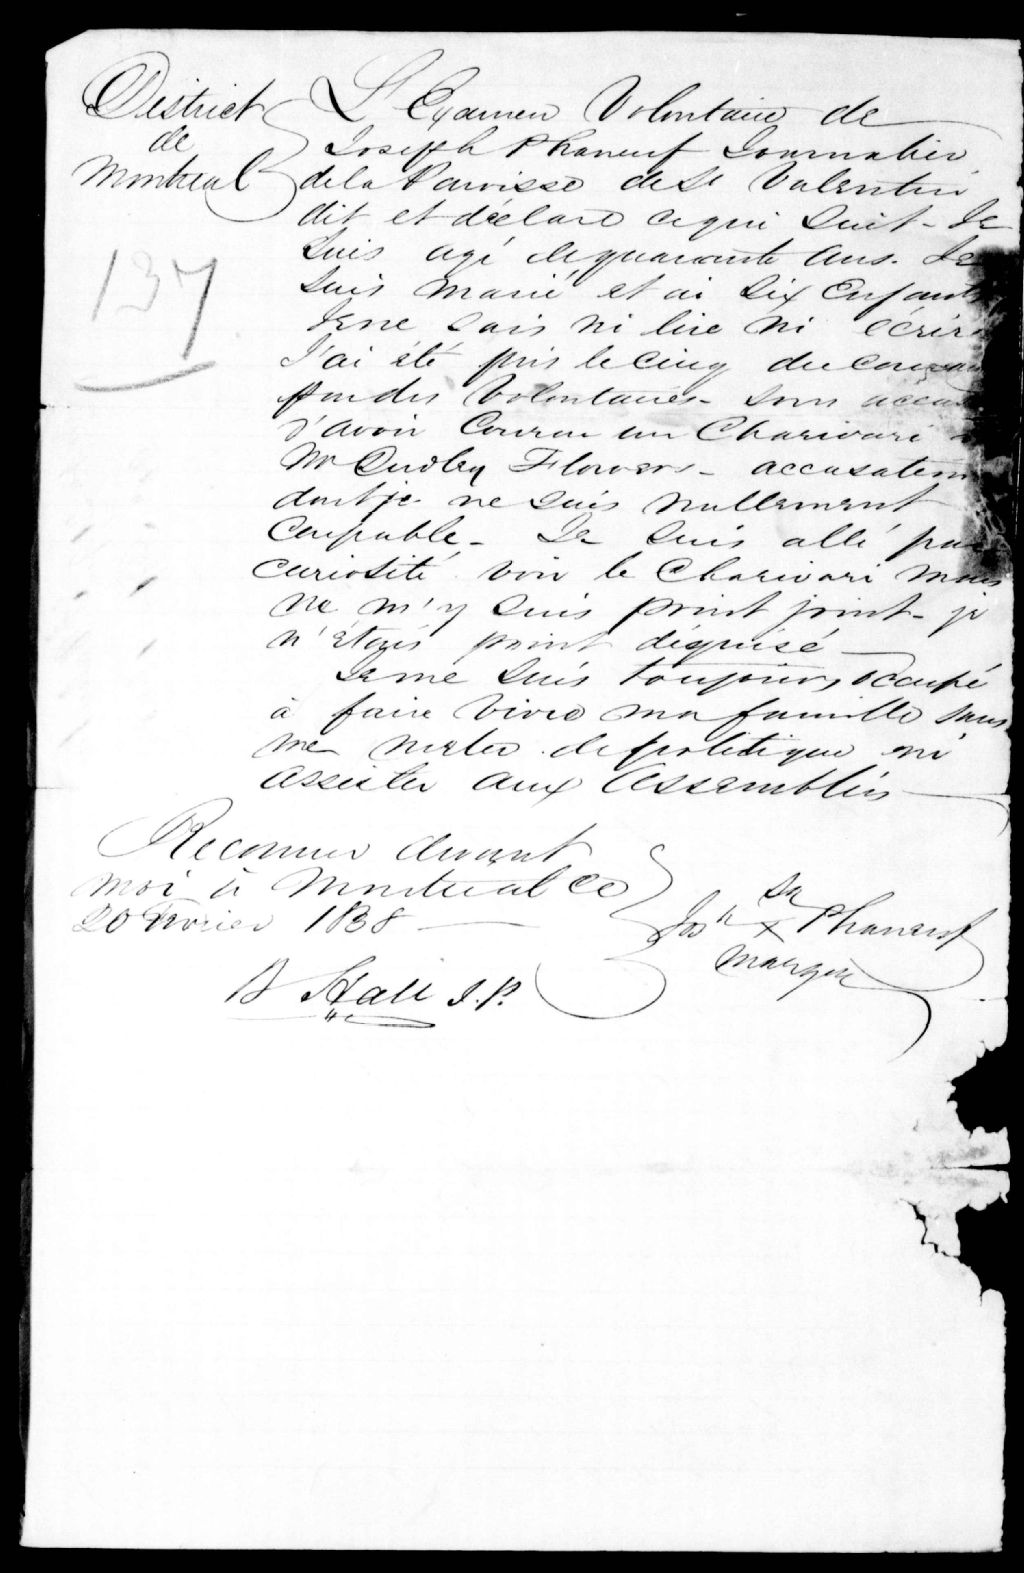 District
de
Montreal
137
L'Examen Volontaire de
Joseph Phaneuf Journalier
de la Paroisse de St Valentin
dit et déclare ce qui suit - Je
suis agé de quarante ans. Je
suis marié et ai six enfants
Je ne sais ni lire ni écrire
J'ai été pris le cinq du courant
par des Volontaires - sous
d'avoir Couru un Charivari
Mr Dudley Flowers - accusation
dont je ne suis nullement
Coupable - Je suis allé par
curiosité voir le Charivari mais
ne m'y suis point joint - je
n'étais point déguisé
Je me suis toujours occupé
à faire vivre ma famille sans
me meler de politique ni
assister aux Assemblées
Reconnu devant
moi à Montreal ce
20 Fevrier 1838
sa
Josh X Phaneuf
marque
B Hall J.P.